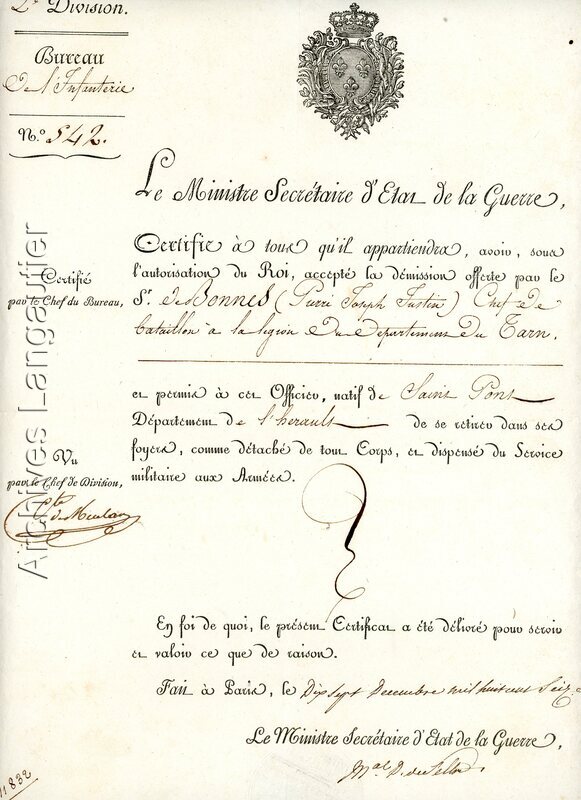 2e Division.
Bureau
de l'Infanterie
N.º 542.
Le Ministre Secrétaire d'Etat de la Guerre,
Certifie à tous qu'il appartiendra, avoir, sous
l'autorisation du Roi, accepté la démission offerte par le
Sr. de Bonnes (Pierre Joseph Justin) Chef de
bataillon à la légion du Département du Tarn.
Certifié
par le Chef du Bureau,
et permis à cet Officier, natif de Saint Pons
Département de l'herault de se retirer dans ses
foyers, comme détaché de tout Corps, et dispensé du Service
militaire aux Armées.
Vu
par le Chef de Division,
Cte de Meulan
En foi de quoi, le présent Certificat a été délivré pour servir
et valoir ce que de raison.
Fait à Paris, le Dix sept Decembre mil huit cent Seize
Le Ministre Secrétaire d'Etat de la Guerre,
Mal D. de Feltre
11.832
Archives Langautier